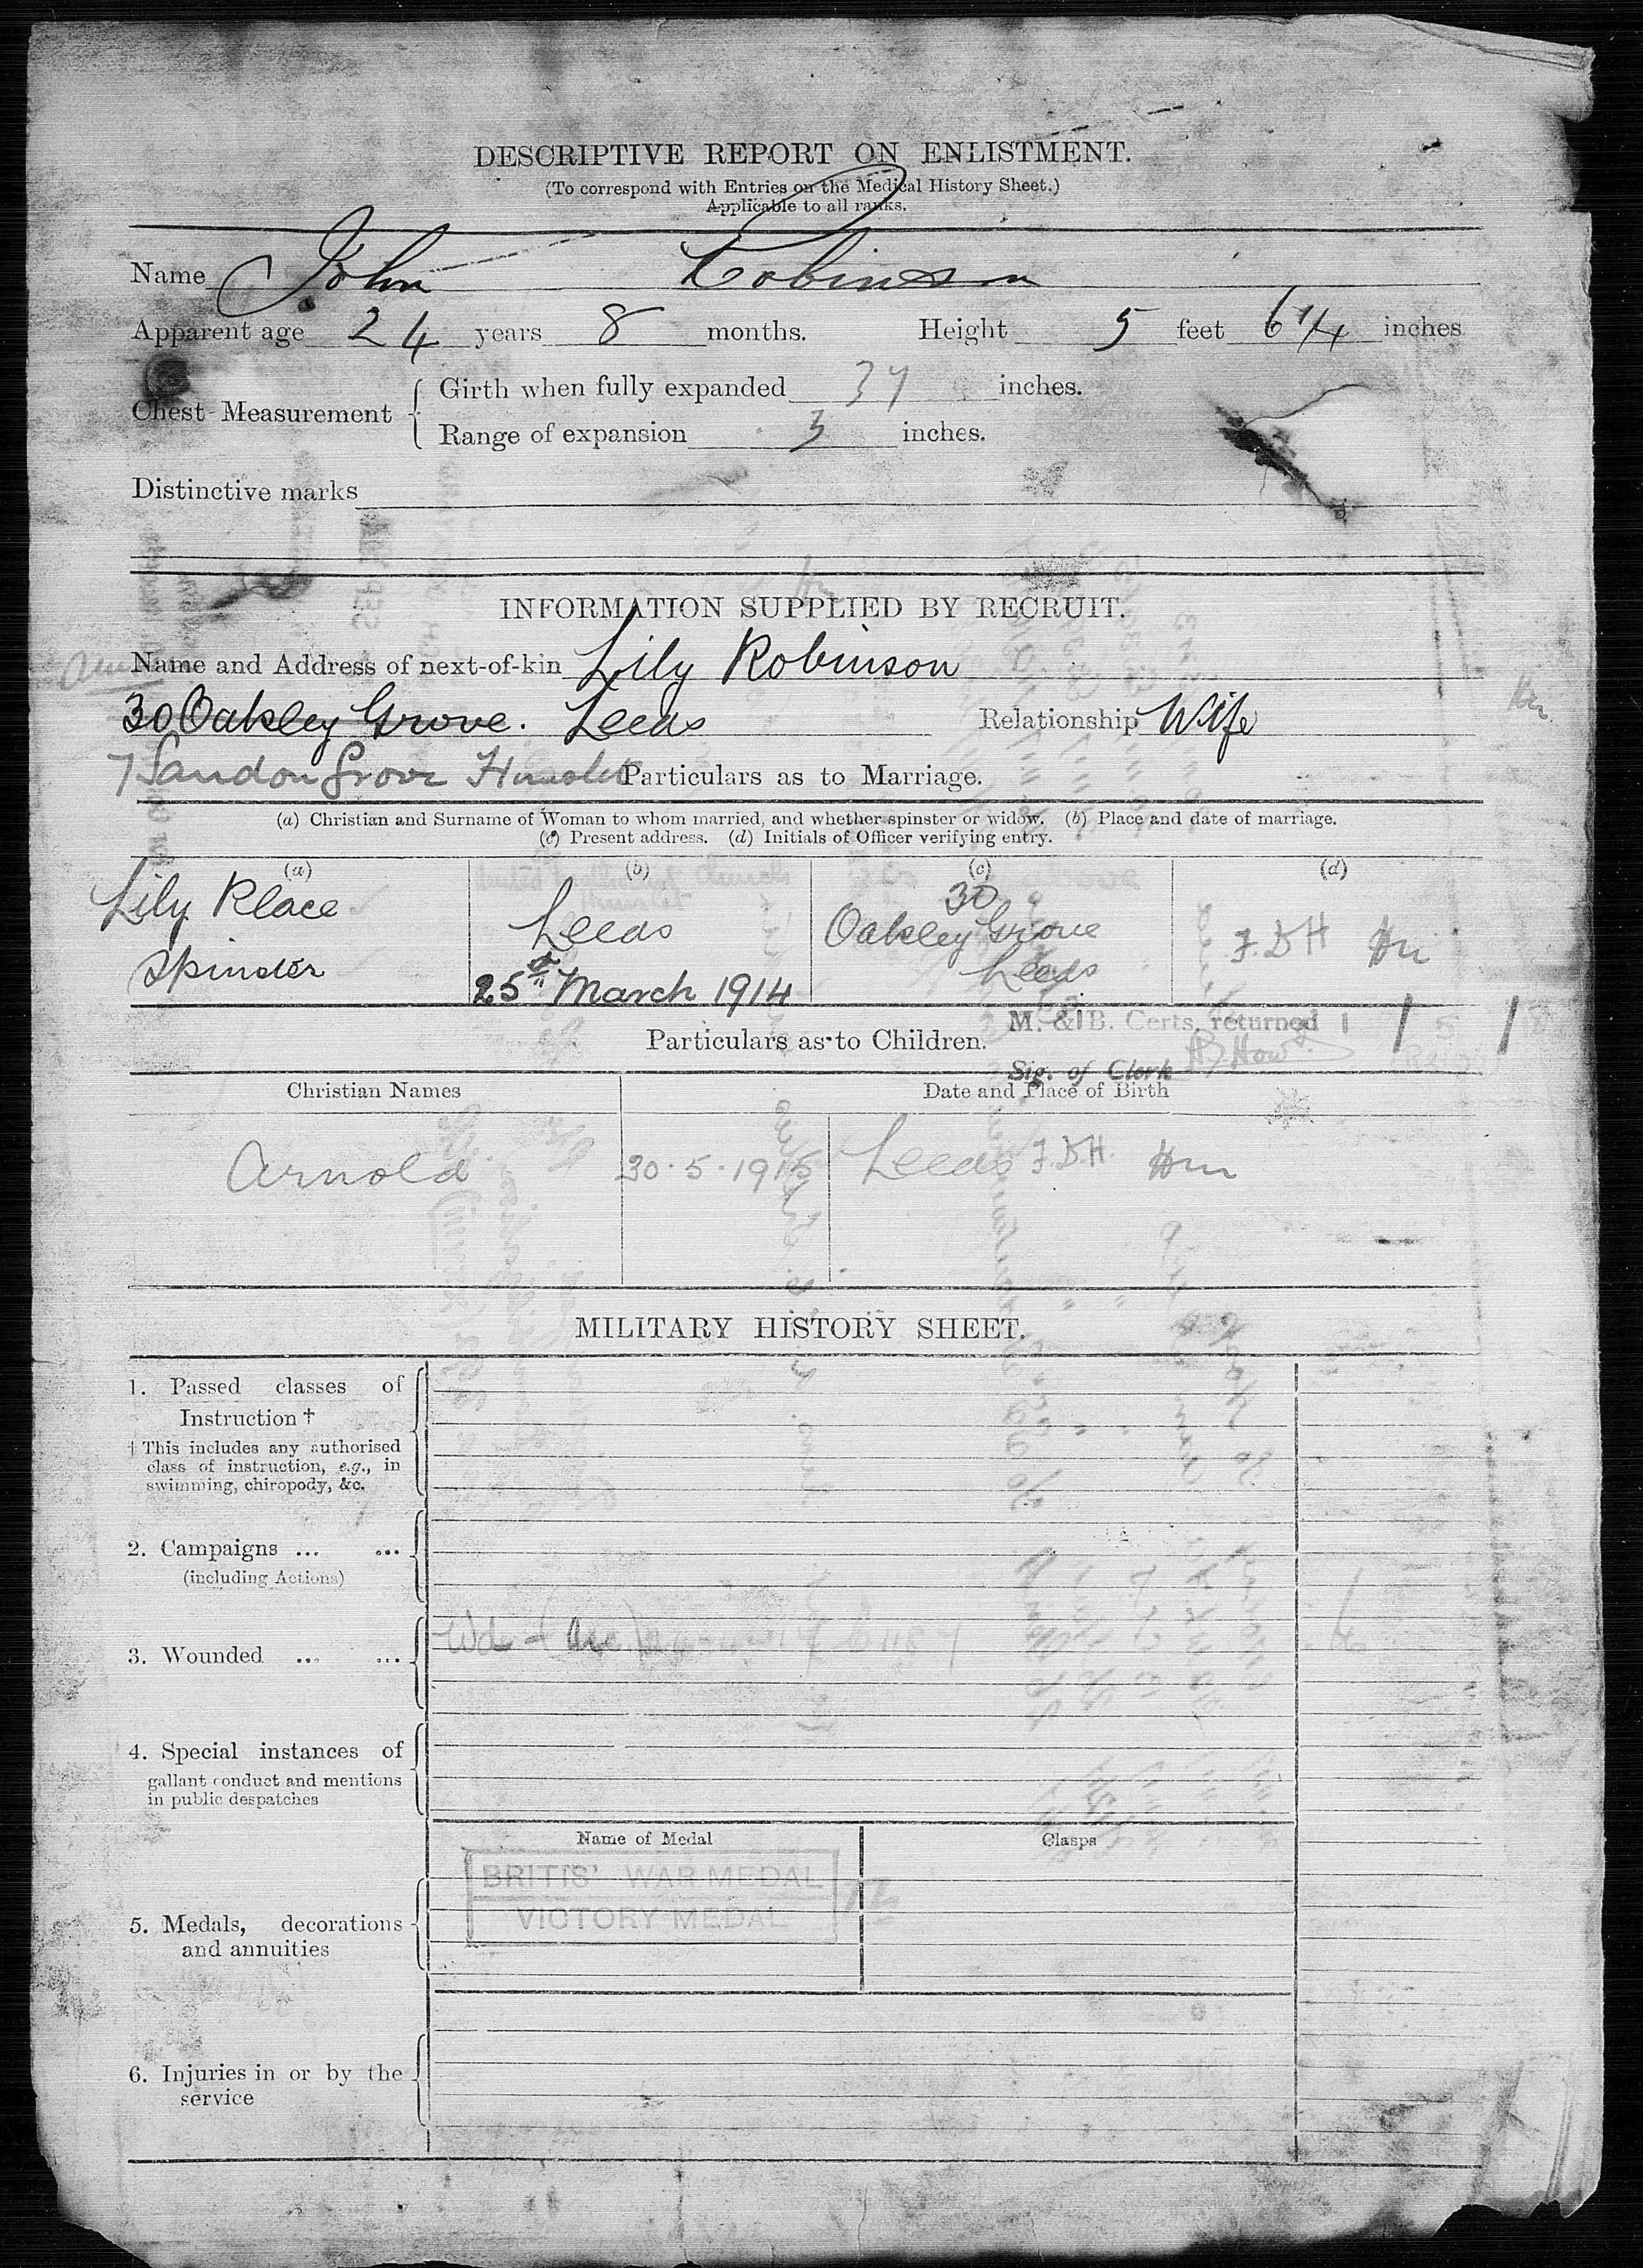 DESCRIPTIVE REPORT ON ENLISTMENT.
(To correspond with Entries on the Medical History Sheet.)
Applicable to all ranks.
Name John Robinson
Apparent age 24 years 8 months. Height 5 feet 6 1/4 inches
Chest Measurement { Girth when fully expanded 37 inches.
Range of expansion 3 inches.
Distinctive marks
INFORMATION SUPPLIED BY RECRUIT.
Name and Address of next-of-kin Lily Robinson
30 Oakley Grove. Leeds Relationship Wife
7 Sandon Grove Hunslet Particulars as to Marriage.
(a) Christian and Surname of Woman to whom married, and whether spinster or widow. (b) Place and date of marriage.
(c) Present address. (d) Initials of Officer verifying entry.
(a) (b) (c) (d)
Lily Place Leeds 30 Oakley Grove Leeds F.D.H
Spinster 25th March 1914
M. & B. Certs. returned
Particulars as to Children.
Sig. of Clerk
Christian Names Date and Place of Birth
Arnold 30.5.1915 Leeds F.D.H.
MILITARY HISTORY SHEET.
1. Passed classes of
Instruction †
† This includes any authorised
class of instruction, e.g., in
swimming, chiropody, &c.
2. Campaigns ... ...
(including Actions)
3. Wounded ... ... Wd
4. Special instances of
gallant conduct and mentions
in public despatches
Name of Medal Clasps
BRITIS' WAR MEDAL
VICTORY MEDAL
5. Medals, decorations
and annuities
6. Injuries in or by the
service